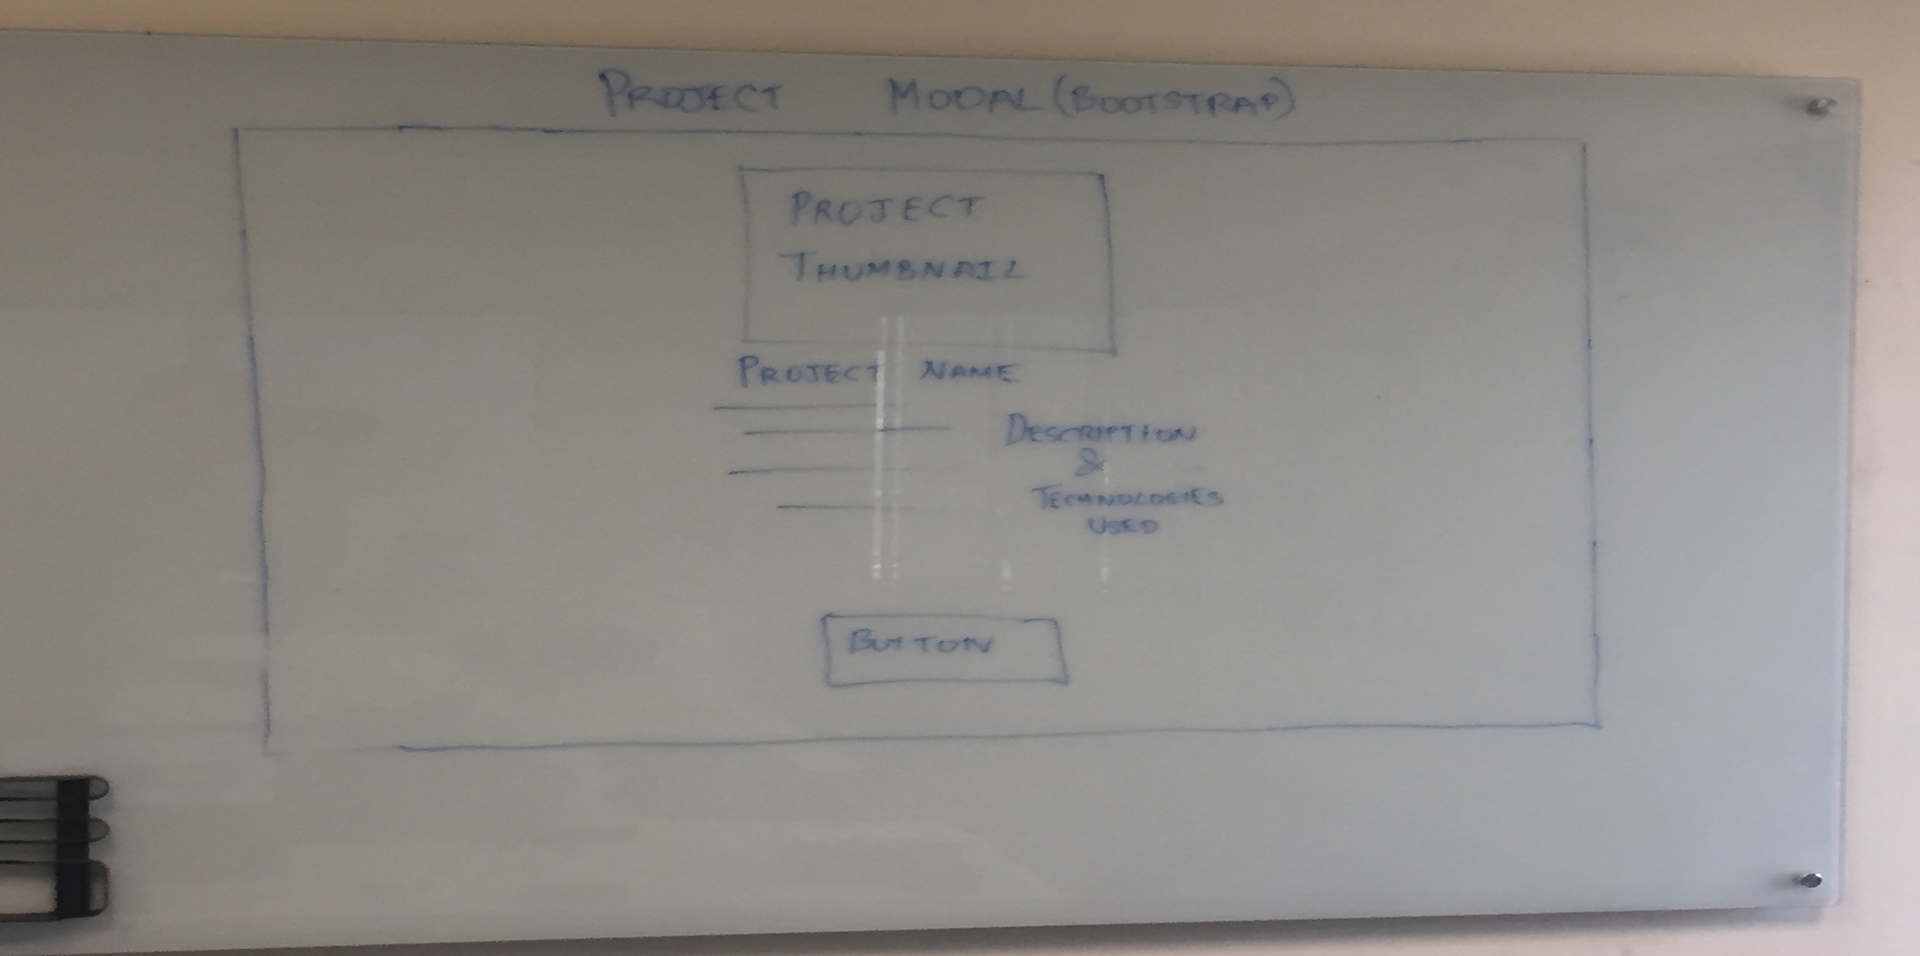 PROJECT MODAL (BOOTSTRAP)
PROJECT
THUMBNAIL
PROJECT NAME
DESCRIPTION
&
TECHNOLOGIES
USED
BUTTON